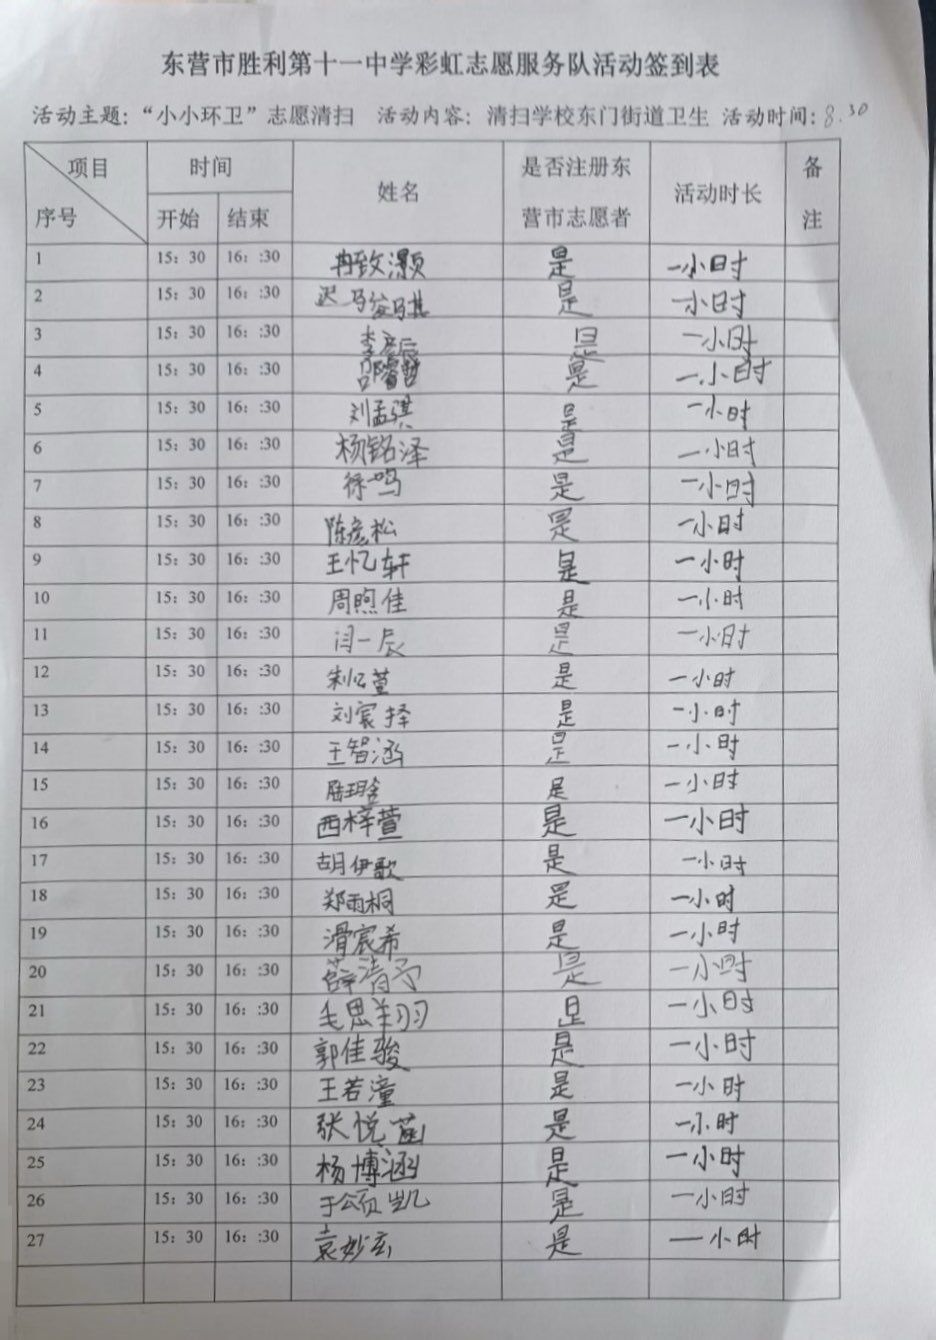 东营市胜利第十一中学彩虹志愿服务队活动签到表
活动主题：“小小环卫”志愿清扫 活动内容：清扫学校东门街道卫生 活动时间：8.30
项目 序号 时间 开始 结束 姓名 是否注册东营市志愿者 活动时长 备注
1 15：30 16：:30 冉致灏 是 一小时
2 15：30 16：:30 迟骏骐 是 一小时
3 15：30 16：:30 李彦辰 是 一小时
4 15：30 16：:30 邵睿哲 是 一小时
5 15：30 16：:30 刘孟骐 是 一小时
6 15：30 16：:30 杨铭泽 是 一小时
7 15：30 16：:30 徐鸣 是 一小时
8 15：30 16：:30 陈彦松 是 一小时
9 15：30 16：:30 王忆轩 是 一小时
10 15：30 16：:30 周煦佳 是 一小时
11 15：30 16：:30 闫一辰 是 一小时
12 15：30 16：:30 朱忆萱 是 一小时
13 15：30 16：:30 刘宸择 是 一小时
14 15：30 16：:30 王智涵 是 一小时
15 15：30 16：:30 是 一小时
16 15：30 16：:30 西梓萱 是 一小时
17 15：30 16：:30 胡伊歌 是 一小时
18 15：30 16：:30 郑雨桐 是 一小时
19 15：30 16：:30 滑宸希 是 一小时
20 15：30 16：:30 薛清予 是 一小时
21 15：30 16：:30 毛思翔 是 一小时
22 15：30 16：:30 郭佳骏 是 一小时
23 15：30 16：:30 王若潼 是 一小时
24 15：30 16：:30 张悦菡 是 一小时
25 15：30 16：:30 杨博涵 是 一小时
26 15：30 16：:30 于颂凯 是 一小时
27 15：30 16：:30 袁妙玄 是 一小时